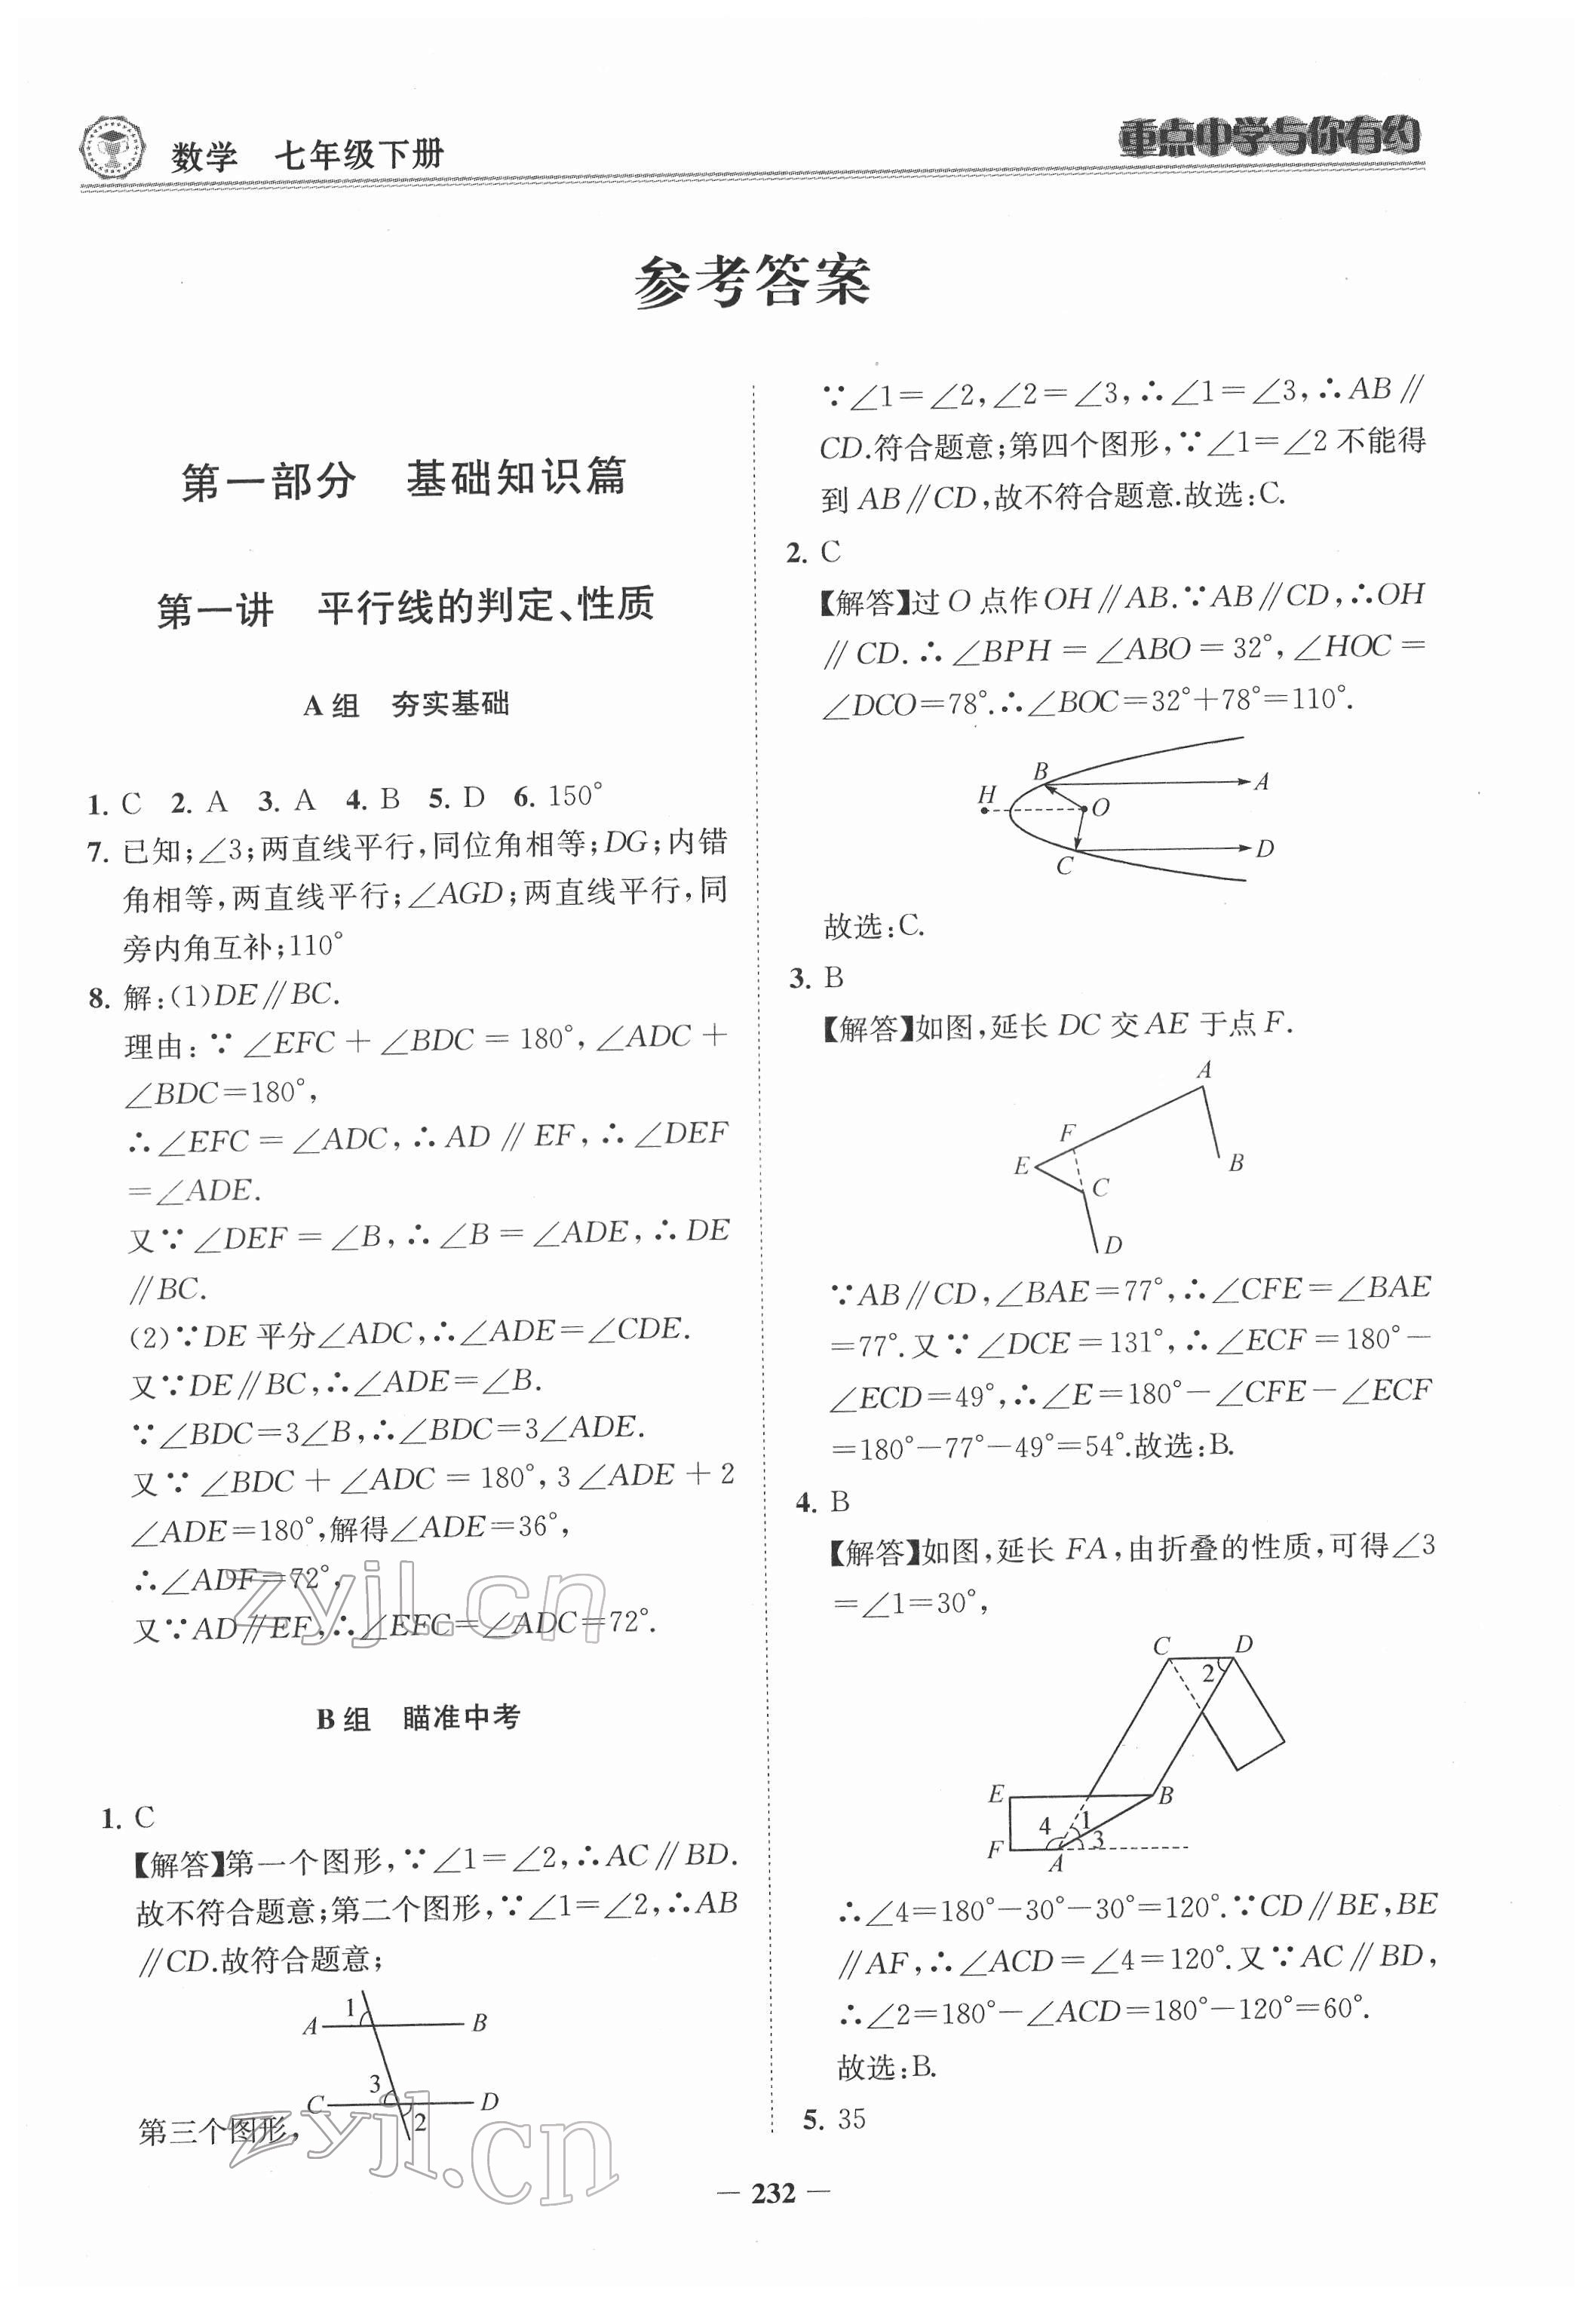 数学 七年级下册
重点中学与你有约
参考答案
第一部分 基础知识篇
第一讲 平行线的判定、性质
A 组 夯实基础
1. C 2. A 3. A 4. B 5. D 6. 150°
7. 已知;∠3;两直线平行,同位角相等;DG;内错
角相等,两直线平行;∠AGD;两直线平行,同
旁内角互补;110°
8. 解:(1)DE∥BC.
理由:∵∠EFC+∠BDC=180°,∠ADC+
∠BDC=180°,
∴∠EFC=∠ADC,∴AD∥EF,∴∠DEF
=∠ADE.
又∵∠DEF=∠B,∴∠B=∠ADE,∴DE
∥BC.
(2)∵DE 平分∠ADC,∴∠ADE=∠CDE.
又∵DE∥BC,∴∠ADE=∠B.
∵∠BDC=3∠B,∴∠BDC=3∠ADE.
又∵∠BDC+∠ADC=180°,3∠ADE+2
∠ADE=180°,解得∠ADE=36°,
∴∠ADF=72°,
又∵AD∥EF,∴∠EFC=∠ADC=72°.
zyjl.cn
B 组 瞄准中考
1. C
【解答】第一个图形,∵∠1=∠2,∴AC∥BD.
故不符合题意;第二个图形,∵∠1=∠2,∴AB
∥CD.故符合题意;
1
A B
3
C D
2
第三个图形,
zyjl.cn
∵∠1=∠2,∠2=∠3,∴∠1=∠3,∴AB∥
CD.符合题意;第四个图形,∵∠1=∠2 不能得
到 AB∥CD,故不符合题意.故选:C.
2. C
【解答】过 O 点作 OH∥AB.∵AB∥CD,∴OH
∥CD.∴∠BPH=∠ABO=32°,∠HOC=
∠DCO=78°.∴∠BOC=32°+78°=110°.
B A
H O
C D
故选:C.
3. B
【解答】如图,延长 DC 交 AE 于点 F.
A
F
E B
C
D
∵AB∥CD,∠BAE=77°,∴∠CFE=∠BAE
=77°.又∵∠DCE=131°,∴∠ECF=180°-
∠ECD=49°,∴∠E=180°-∠CFE-∠ECF
=180°-77°-49°=54°.故选:B.
4. B
【解答】如图,延长 FA,由折叠的性质,可得∠3
=∠1=30°,
C D
2
E B
4 1
F 3
A
∴∠4=180°-30°-30°=120°.∵CD∥BE,BE
∥AF,∴∠ACD=∠4=120°.又∵AC∥BD,
∴∠2=180°-∠ACD=180°-120°=60°.
故选:B.
5. 35
— 232 —